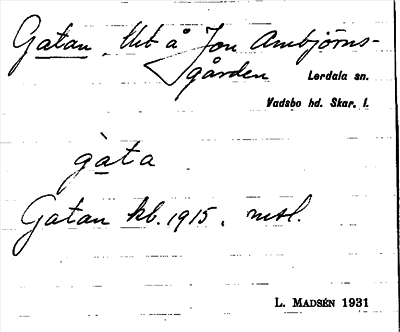 Gatan. Utb å Jon Ambjörns-
gården Lerdala sn.
Vadsbo hd. Skar. l.
gàta
Gatan kb. 1915. msl.
L. MADSÉN 1931